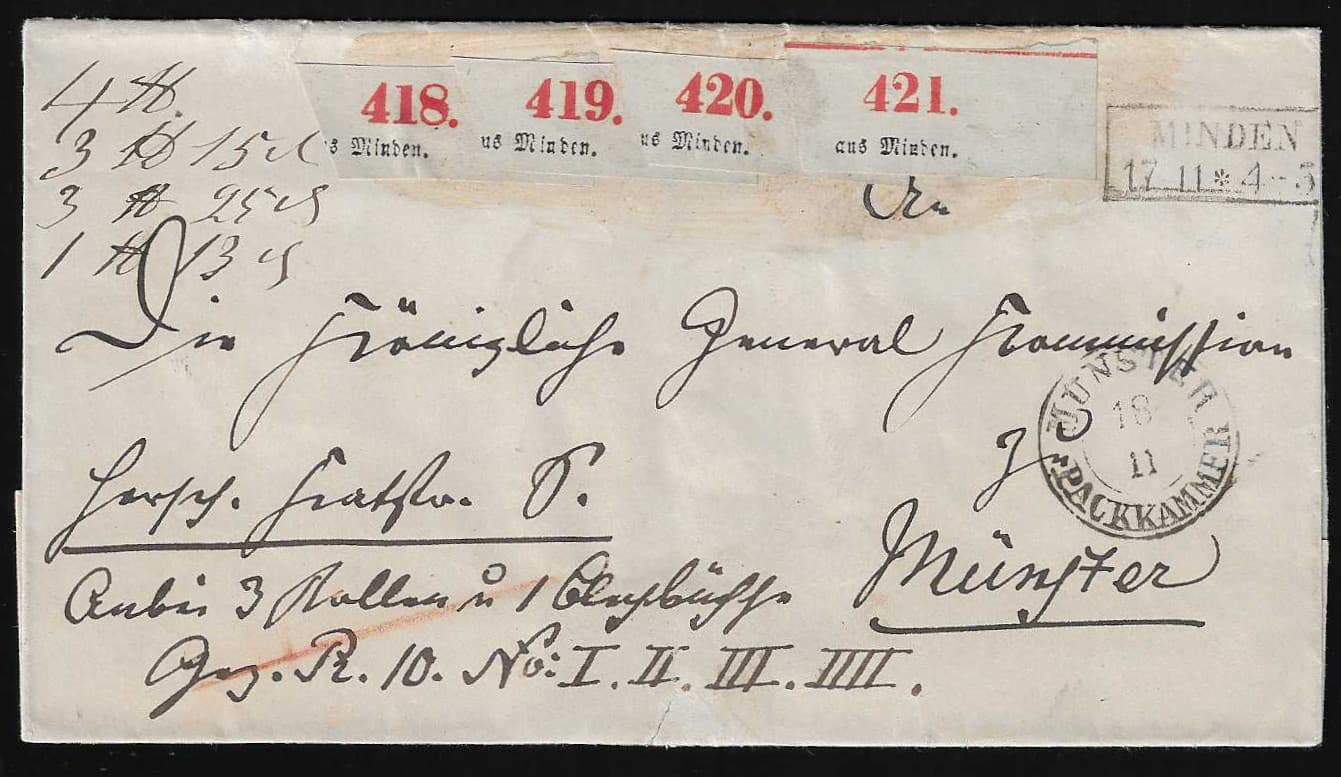 4 ℔.
3 ℔ 15
3 ℔ 25
1 ℔ 13
418. 419. 420. 421.
s Minden. us Minden. us Minden. aus Minden.
MINDEN
17 11 * 4-5
An
Die Königliche General Kommission
MÜNSTER
18
11
PACKKAMMER
Zu
Hersch. S.
Münster
Anbei 3 Rollen u 1 Blechbüchse
Gez. R. 10. No: I. II. III. IIII.